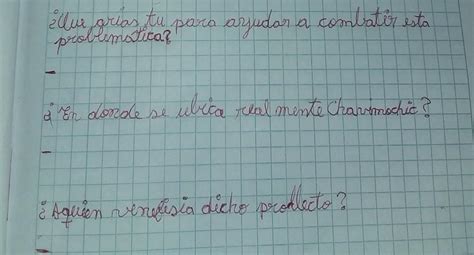 ¿Que arias tu para ayudar a combatir esta
problematica?
-
¿En donde se ubica real mente Chavimochic?
-
¿Aquien venefisia dicho prodlecto?
-